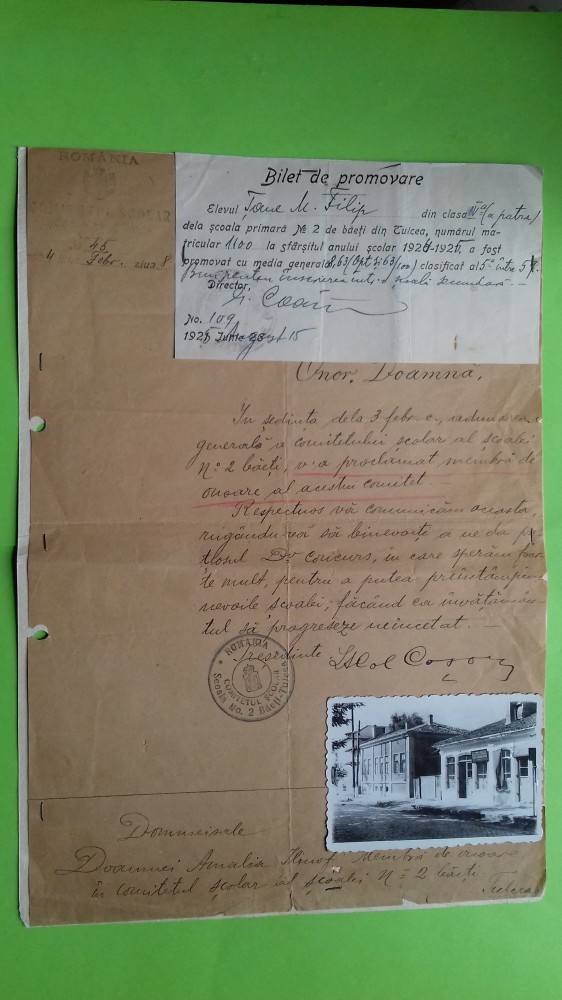 ROMÂNIA
45
Febr. ziua 8
Bilet de promovare
Elevul M. Filip din clasa IV a (a patra)
dela școala primară № 2 de băeți din Tulcea, numărul ma-
tricular 1100 la sfârșitul anului școlar 192 -192 , a fost
promovat cu media generală 8,63 (opt și 63/100) clasificat al 5 lea între 5
Bun pentru înscrierea într'o școală secundară. —
Director,
No. 109
192 Iunie August 15
Onor. Doamna,
În ședința dela 3 febr. c., adunarea
generală a comitetului școlar al școalei
N° 2 băeți, v-a proclamat membră de
onoare al acestui comitet.
Respectuos vă comunicăm aceasta,
rugându-vă să binevoiți a ne da
Dv concurs, în care sperăm foar-
te mult, pentru a putea preîntâmpina
nevoile școalei, făcând ca învățămân-
tul să progreseze neîncetat. —
Președinte
ROMÂNIA
COMITETUL ȘCOLAR
Școala No. 2 Băeți-Tulcea
Domnieisale
Doamnei Amalia membră de onoare
în comitetul școlar al școalei N° 2 băeți
Tulcea